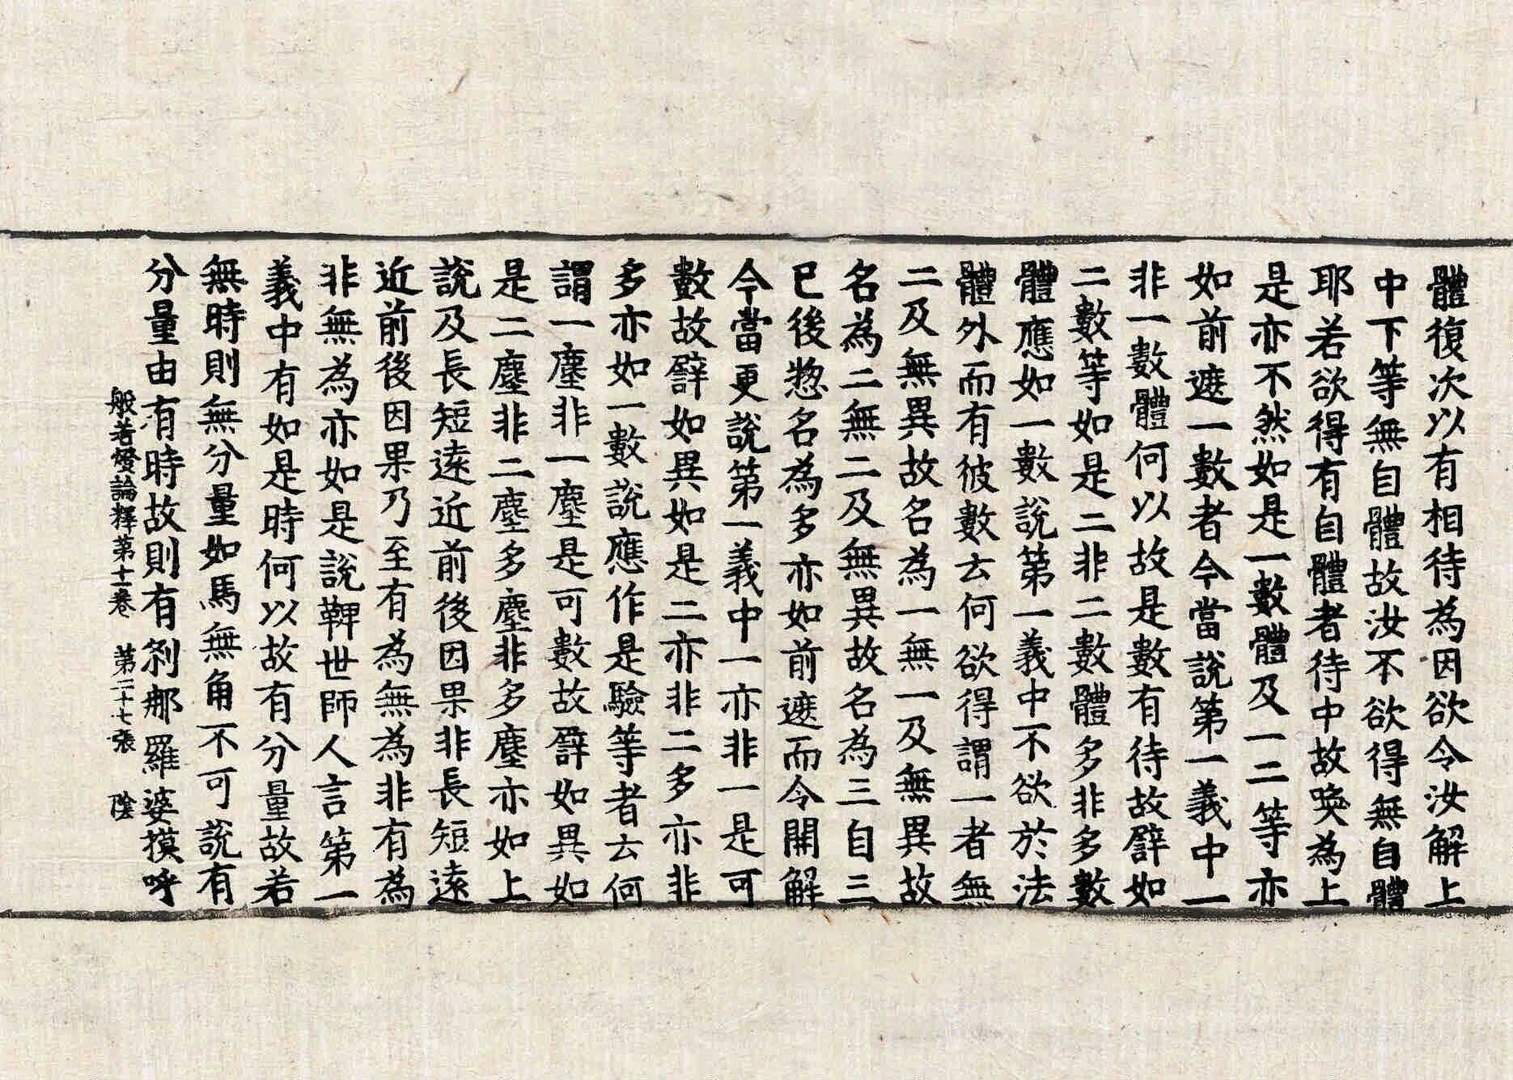 體復次以有相待為因欲令汝解上
中下等無自體故汝不欲得無自體
耶若欲得有自體者待中故喚為上
是亦不然如是一數體及一二等亦
如前遮一數者今當說第一義中一
非一數體何以故是數有待故譬如
二數等如是二非二數體多非多數
體應如一數說第一義中不欲於法
體外而有彼數云何欲得謂一者無
二及無異故名為一無一及無異故
名為二無二及無異故名為三自三
已後惣名為多亦如前遮而令開解
今當更說第一義中一亦非一是可
數故譬如異如是二亦非二多亦非
多亦如一數說應作是驗等者云何
謂一塵非一塵是可數故譬如異如
是二塵非二塵多塵非多塵亦如上
說及長短遠近前後因果非長短遠
近前後因果乃至有為無為非有為
非無為亦如是說鞞世師人言第一
義中有如是時何以故有分量故若
無時則無分量如馬無角不可說有
分量由有時故則有剎那羅婆摸呼
般若燈論釋第十一卷 第二十七張 陰